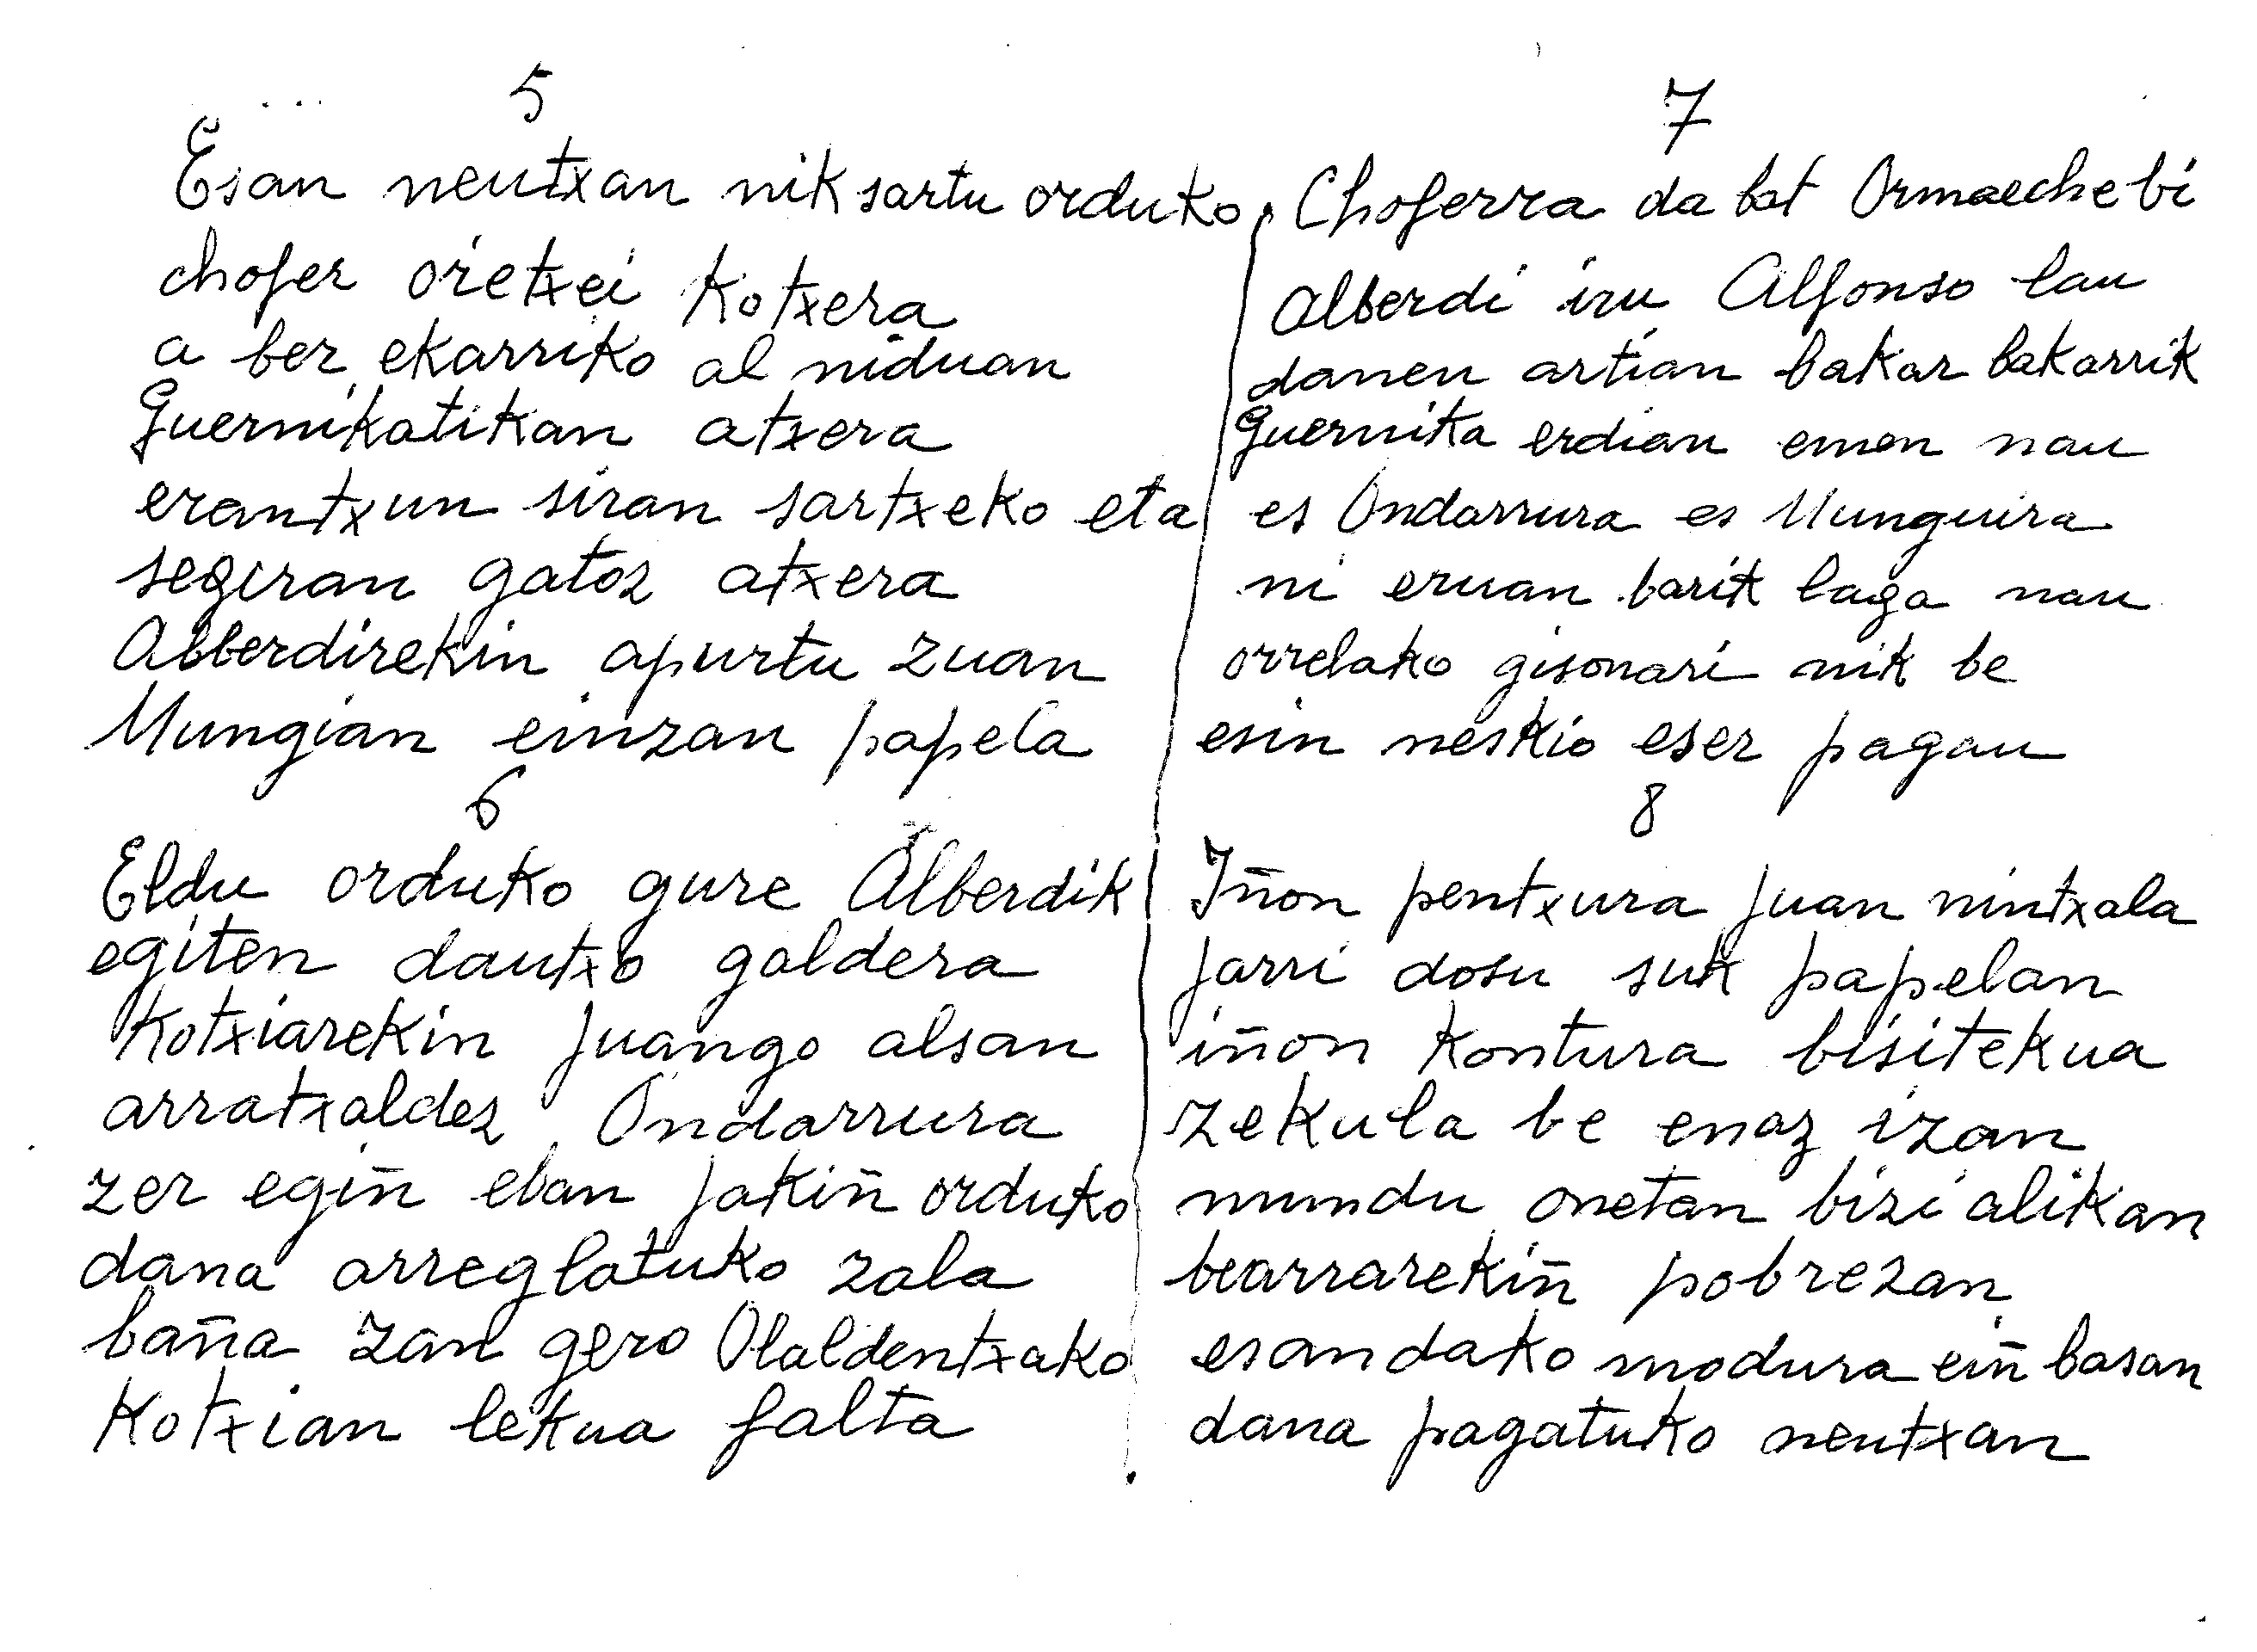 5
Esan neutxan nik sartu orduko
chofer oietxei kotxera
a ber ekarriko al niduan
Guernikatikan atxera
erantxun siran sartxeko eta
segiran gatoz atxera
Alberdirekin apurtu zuan
Mungian einzan papela
6
Eldu orduko gure Alberdik
egiten dautxo galdera
Kotxiarekin juango alsan
arratxaldez Ondarrura
zer egiñ eban jakiñ orduko
dana arreglatuko zala
baña zan gero Olaldentxako
Kotxian lekua falta
7
Choferra da bat Ormaeche bi
Alberdi iru Alfonso lau
danen artian bakar bakarrik
Guernika erdian emen nau
es Ondarrura es Munguira
ni eruan barik laga nau
orrelako gisonari nik be
esin neskio eser pagau
8
Iñon pentxura juan nintxala
jarri dosu suk papelan
iñon kontura bisitekua
zekula be enaz izan
mundu onetan bizi alikan
bearrarekiñ pobrezan
esandako modura eiñ basan
dana pagatuko neutxan